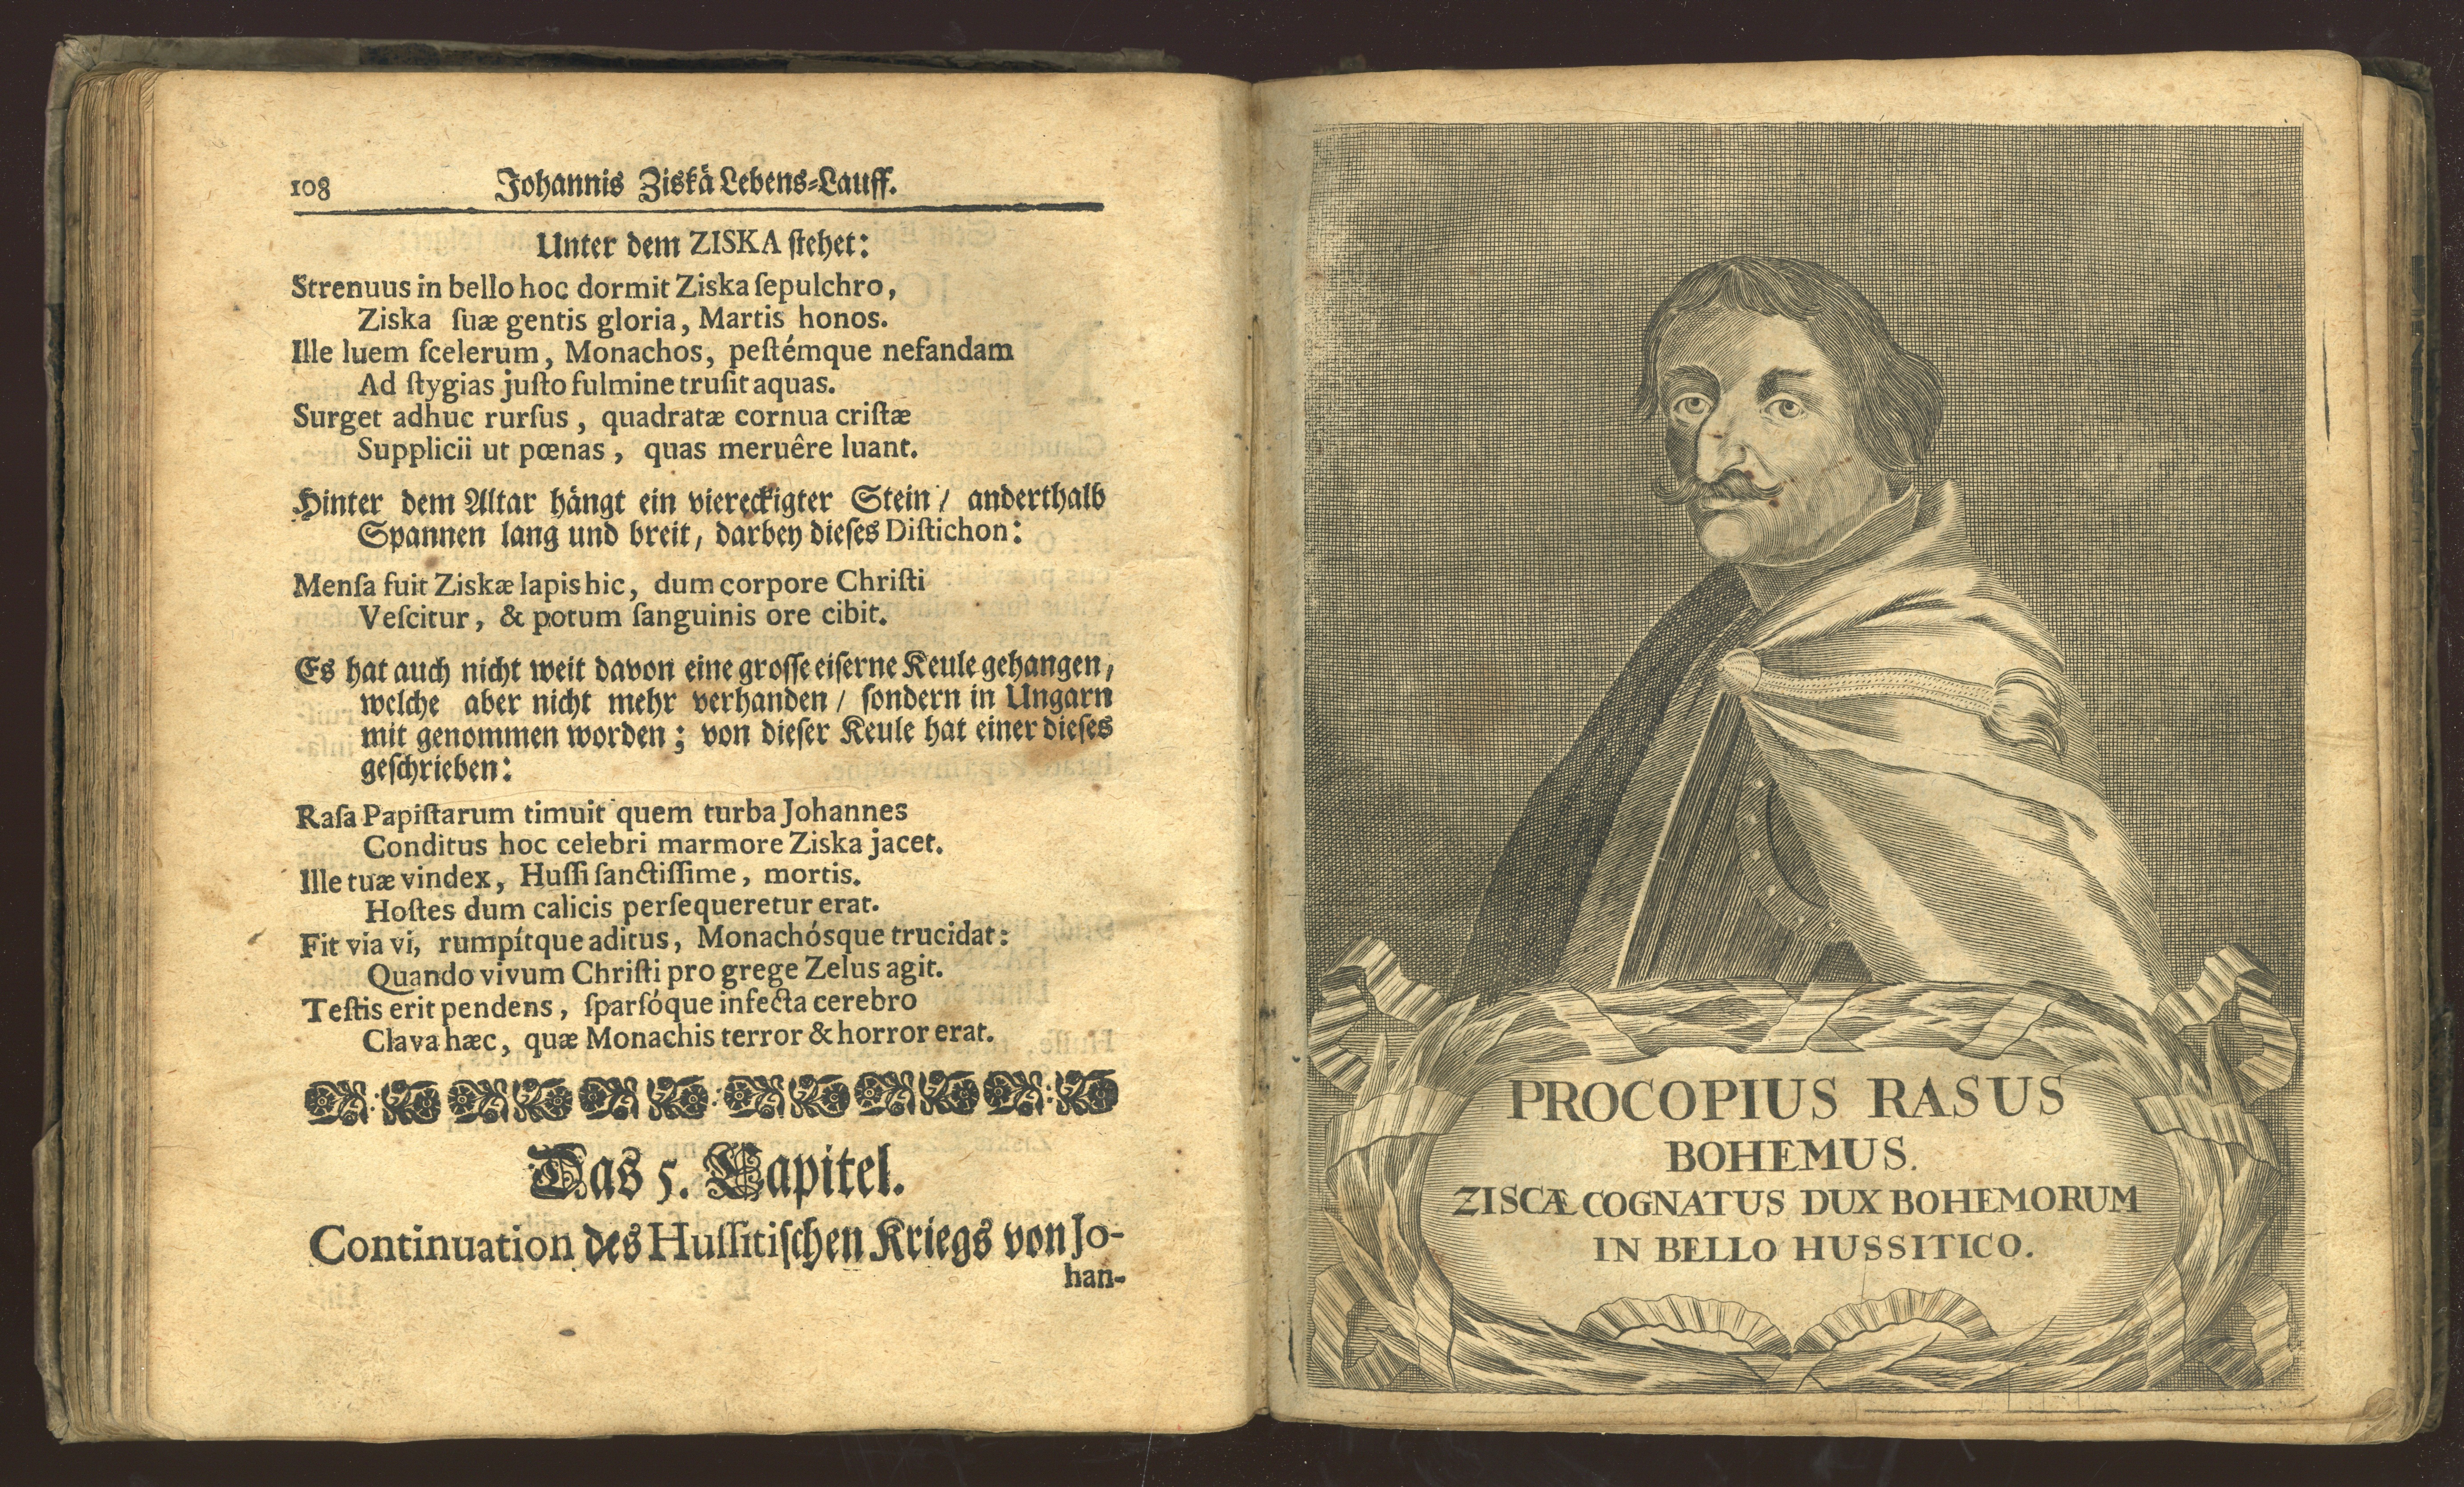 108 Johannis Ziskä Lebens-Lauff.
Unter dem ZISKA stehet:
Strenuus in bello hoc dormit Ziska ſepulchro,
Ziska ſuæ gentis gloria, Martis honos.
Ille luem ſcelerum, Monachos, peſtémque nefandam
Ad ſtygias juſto fulmine truſit aquas.
Surget adhuc rurſus, quadratæ cornua criſtæ
Supplicii ut pœnas, quas meruêre luant.
Hinter dem Altar hängt ein viereckigter Stein / anderthalb
Spannen lang und breit, darbey dieſes Diſtichon:
Menſa fuit Ziskæ lapis hic, dum corpore Chriſti
Veſcitur, & potum ſanguinis ore cibit.
Es hat auch nicht weit davon eine groſſe eiſerne Keule gehangen,
welche aber nicht mehr verhanden / ſondern in Ungarn
mit genommen worden; von dieſer Keule hat einer dieſes
geſchrieben:
Raſa Papiſtarum timuit quem turba Johannes
Conditus hoc celebri marmore Ziska jacet.
Ille tuæ vindex, Huſſi ſanctiſſime, mortis.
Hoſtes dum calicis perſequeretur erat.
Fit via vi, rumpítque aditus, Monachósque trucidat:
Quando vivum Chriſti pro grege Zelus agit.
Teſtis erit pendens, ſparſóque infecta cerebro
Clava hæc, quæ Monachis terror & horror erat.
Das 5. Capitel.
Continuation des Huſſitiſchen Kriegs von Jo-
han-
PROCOPIUS RASUS
BOHEMUS.
ZISCÆ COGNATUS DUX BOHEMORUM
IN BELLO HUSSITICO.